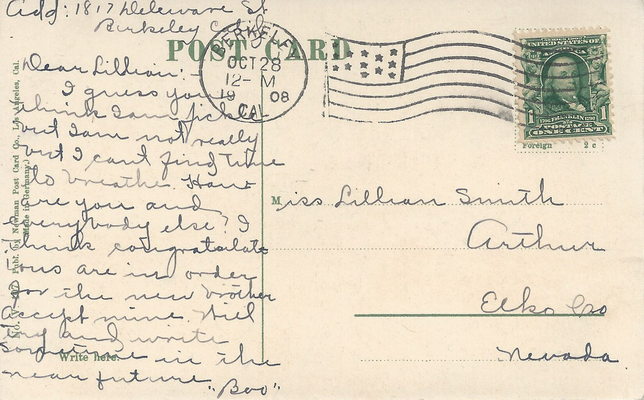 Add: 1817 Deleware St
Berkeley Calif.
POST CARD
BERKELEY
OCT 28
12-M
19 08
CAL
UNITED STATES OF AMERICA
1 1
POSTAGE
ONE CENT
Foreign 2 c
Dear Lillian:-
I guess you
think I am fickle
but I am not really
but I can't find time
to breathe. How
are you and
everybody else? I
think congratulat
ions are in order
for the new brother
accept mine. Will
try and write
sometime in the
near future
"Boo"
Write here.
Miss Lillian Smith
Arthur
Elko Co
Nevada
Publ. by Newman Post Card Co., Los Angeles, Cal.
Made in Germany